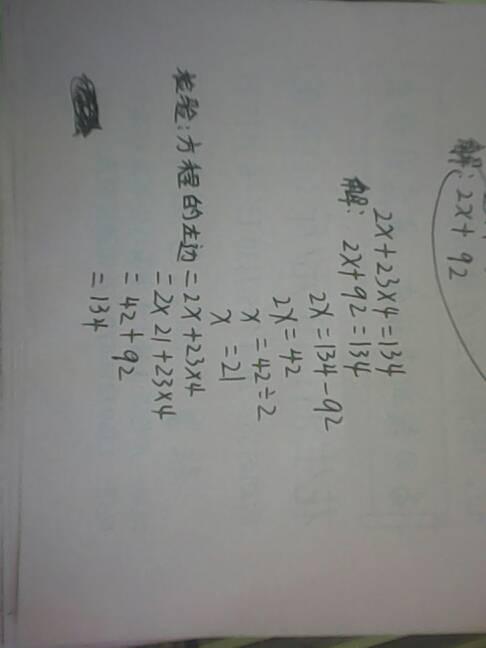 解：2x+92
2x+23×4=134
解：2x+92=134
2x=134-92
2x=42
x=42÷2
x=21
检验：方程的左边=2x+23×4
=2×21+23×4
=42+92
=134